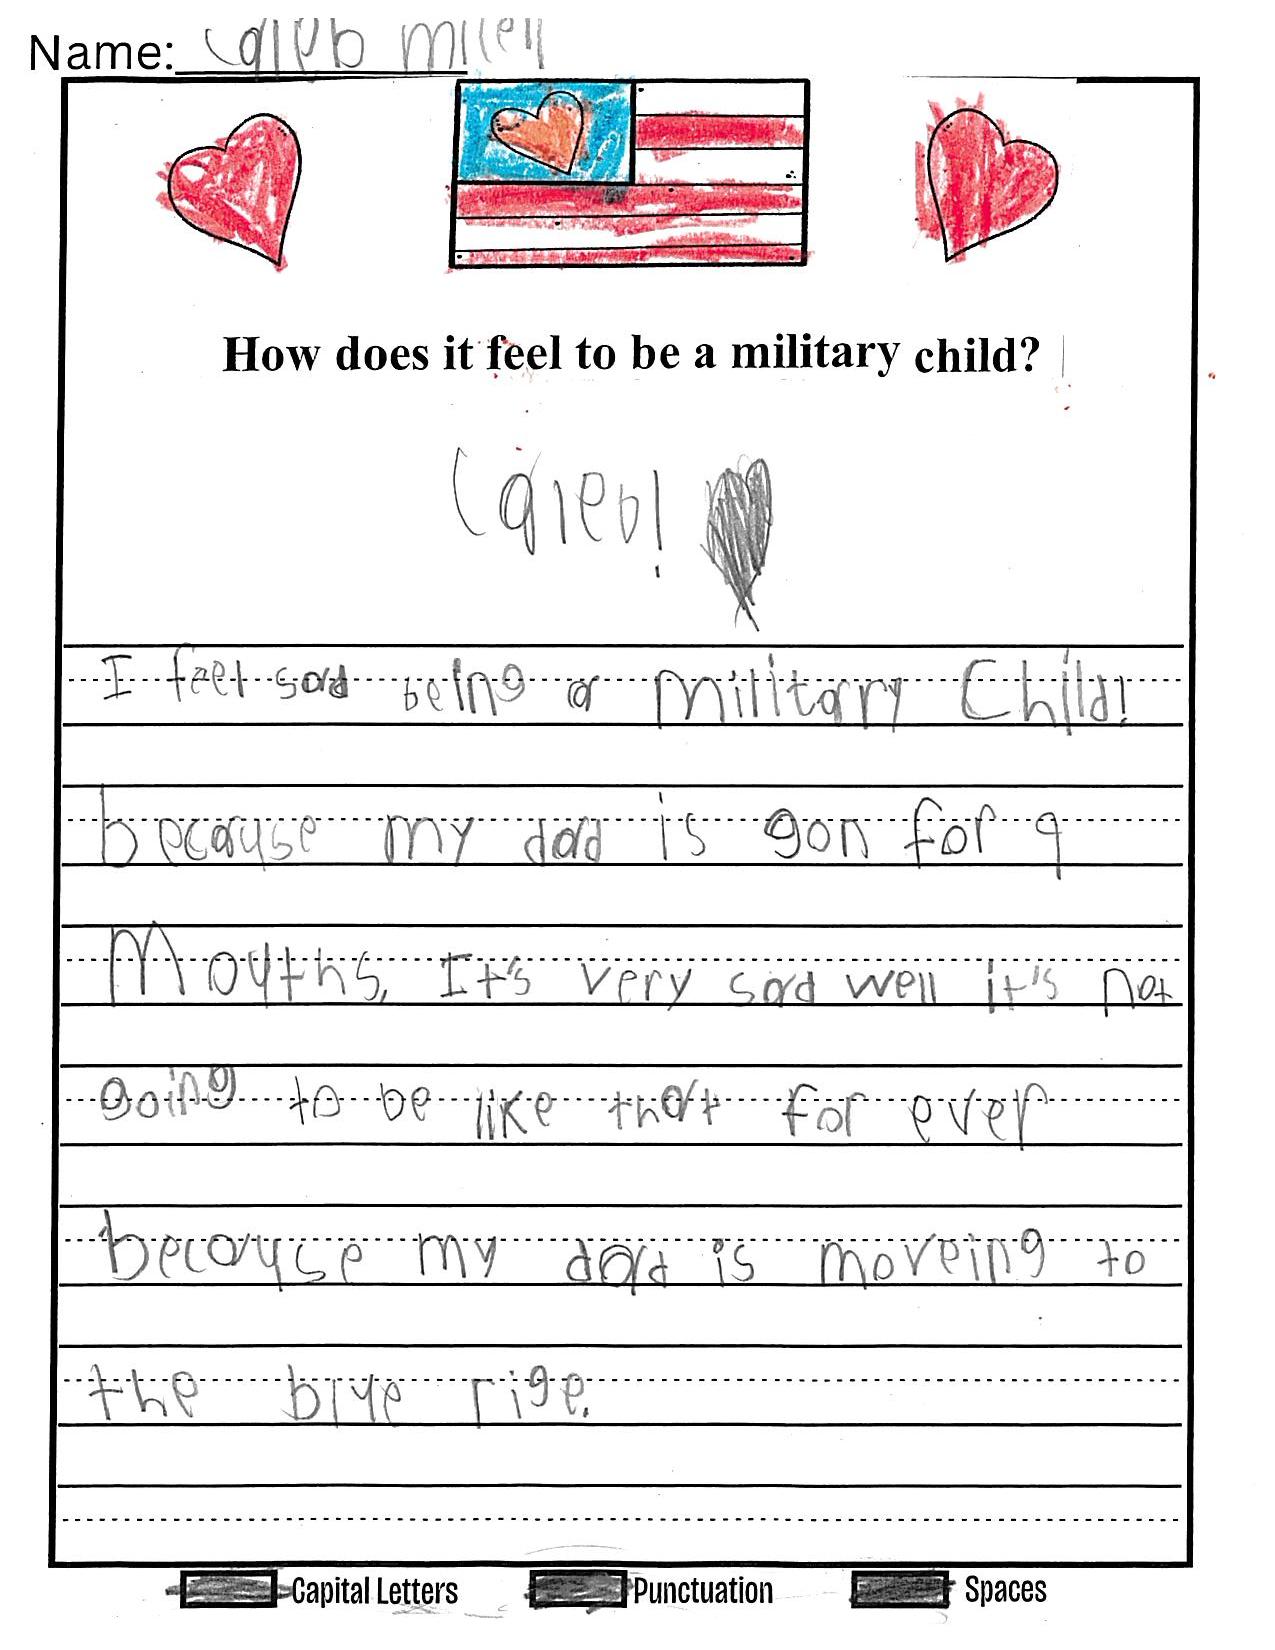 Name: Caleb Miell
How does it feel to be a military child?
Caleb!
I feel sad being a Military Child!
because my dad is gon for 9
Mouths, It's very sad well it's not
going to be like that for ever
because my dad is moveing to
the blue rige.
Capital Letters Punctuation Spaces